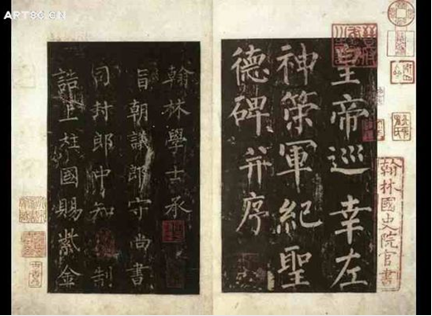 皇帝巡幸左
神策軍紀聖
德碑并序
翰林國史院官書
翰林學士承
旨朝議郎守尚書
司封郎中知制
誥上柱國賜紫金